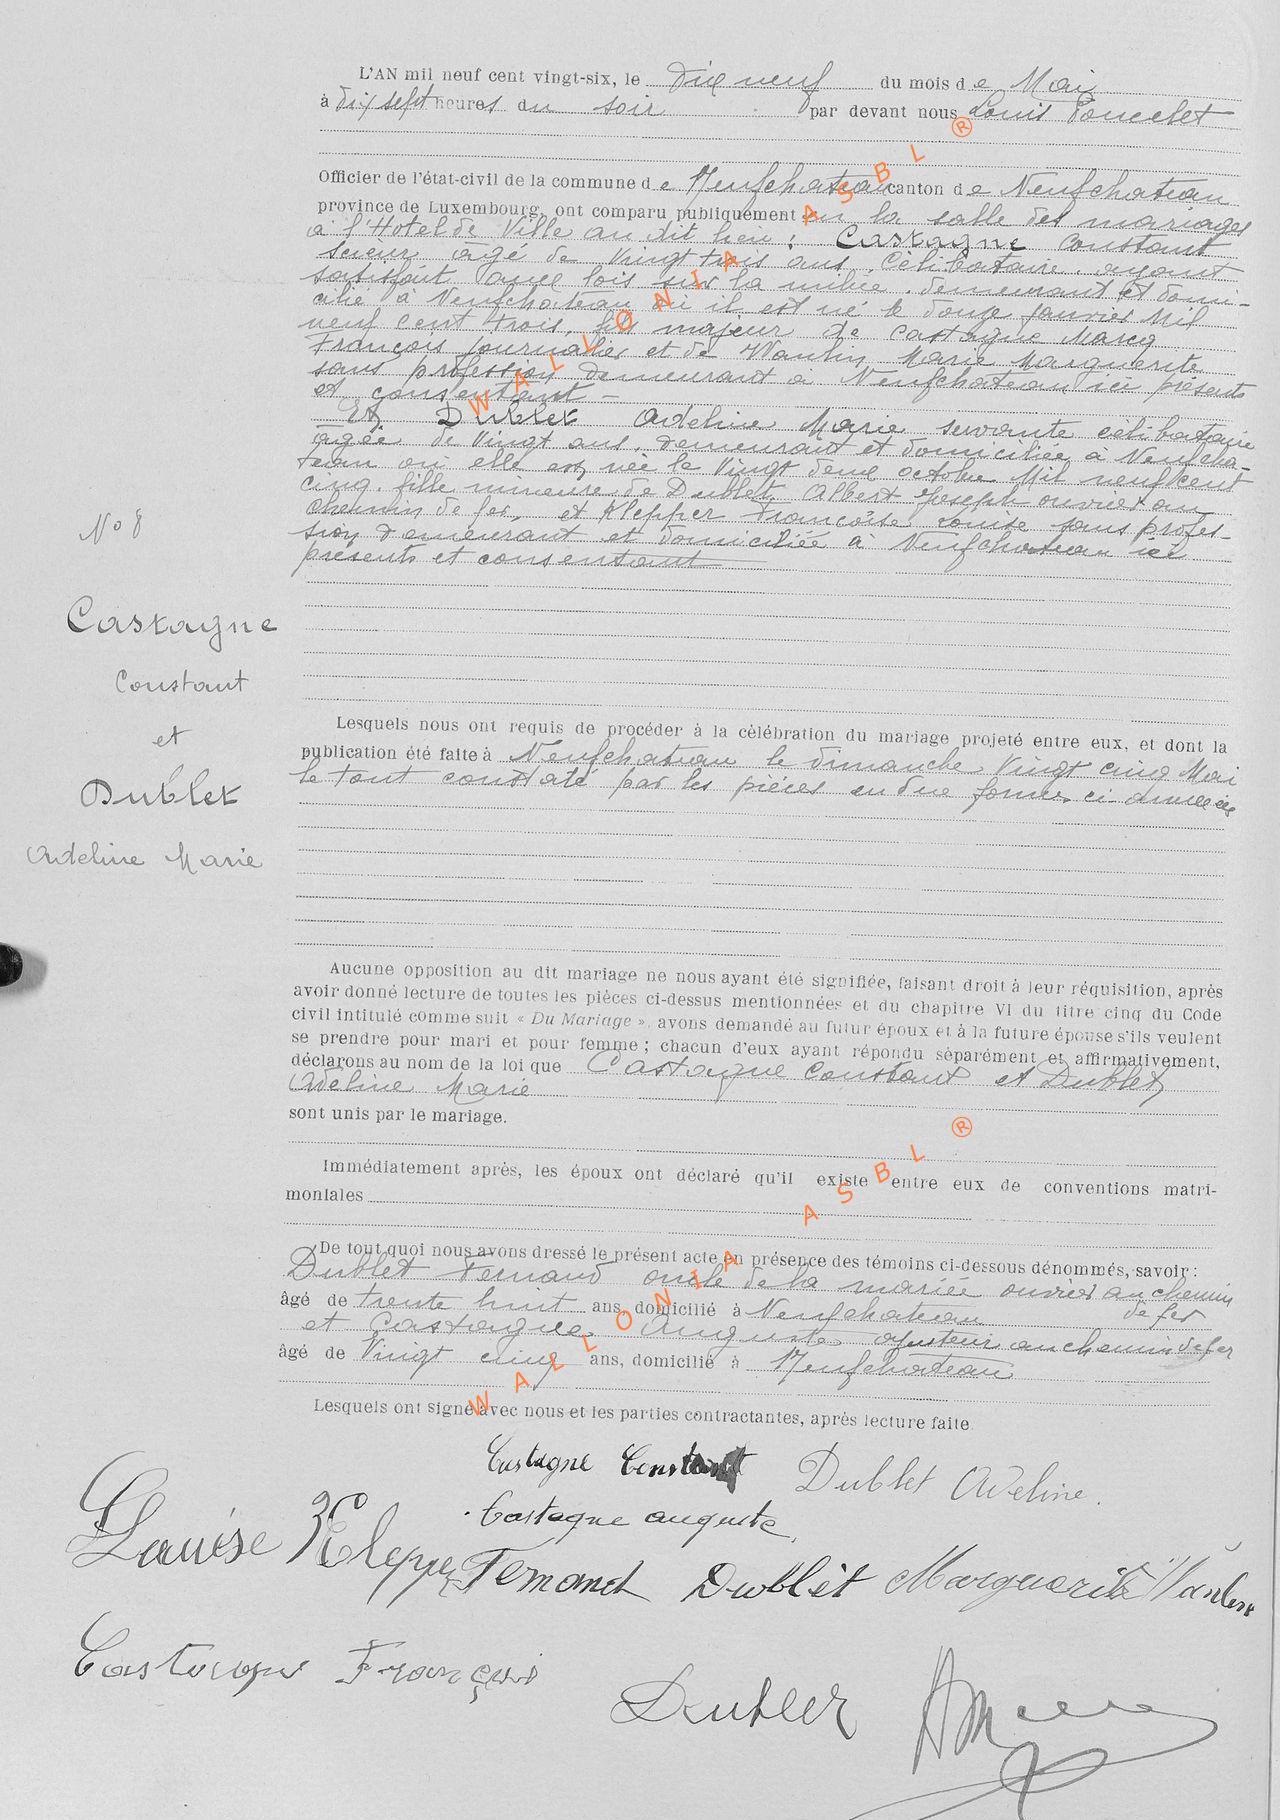 L'AN mil neuf cent vingt-six, le dix neuf du mois de Mai
à dix sept heures du soir par devant nous Louis
Officier de l'état-civil de la commune de Neufchateau canton de Neufchateau
province de Luxembourg, ont comparu publiquement en la salle des mariages
à l'Hotel de Ville au dit lieu : Castagne Constant
scieur âgé de vingt trois ans, célibataire ayant
satisfait aux lois sur la milice, demeurant et domi-
cilié à Neufchateau où il est né le douze janvier Mil
neuf cent trois, fils majeur de Castagne Marcq
François journalier et de Wanlin Marie Marguerite
sans profession demeurant à Neufchateau ici présents
et consentant -
Et Dublet Adeline Marie servante célibataire
âgée de vingt ans, demeurant et domiciliée à Neufcha-
teau où elle est née le vingt deux octobre Mil neuf cent
cinq, fille mineure de Dublet Albert Joseph ouvrier au
chemin de fer, et Klepper Françoise Louise sans profes-
sion demeurant et domiciliée à Neufchateau ici
présents et consentant
No 8
Castagne
Constant
et
Dublet
Adeline Marie
Lesquels nous ont requis de procéder à la célébration du mariage projeté entre eux, et dont la
publication été faite à Neufchateau le dimanche vingt cinq Mai
le tout constaté par les pièces en due forme ci annexées
Aucune opposition au dit mariage ne nous ayant été signifiée, faisant droit à leur réquisition, après
avoir donné lecture de toutes les pièces ci-dessus mentionnées et du chapitre VI du titre cinq du Code
civil intitulé comme suit « Du Mariage », avons demandé au futur époux et à la future épouse s'ils veulent
se prendre pour mari et pour femme ; chacun d'eux ayant répondu séparément et affirmativement,
déclarons au nom de la loi que Castagne Constant et Dublet
Adeline Marie
sont unis par le mariage.
Immédiatement après, les époux ont déclaré qu'il existe entre eux de conventions matri-
moniales
De tout quoi nous avons dressé le présent acte en présence des témoins ci-dessous dénommés, savoir :
Dublet Fernand oncle de la mariée ouvrier au chemin
de fer
âgé de trente huit ans, domicilié à Neufchateau
et Castagne Auguste ajusteur au chemin de fer
âgé de Vingt cinq ans, domicilié à Neufchateau
Lesquels ont signé avec nous et les parties contractantes, après lecture faite.
Castagne Constant Dublet Adeline.
Castagne auguste
Louise Klepper Fernand Dublet Marguerite Wanlin
Castagne François
Dublet
WALLONIA ASBL ®
WALLONIA ASBL ®